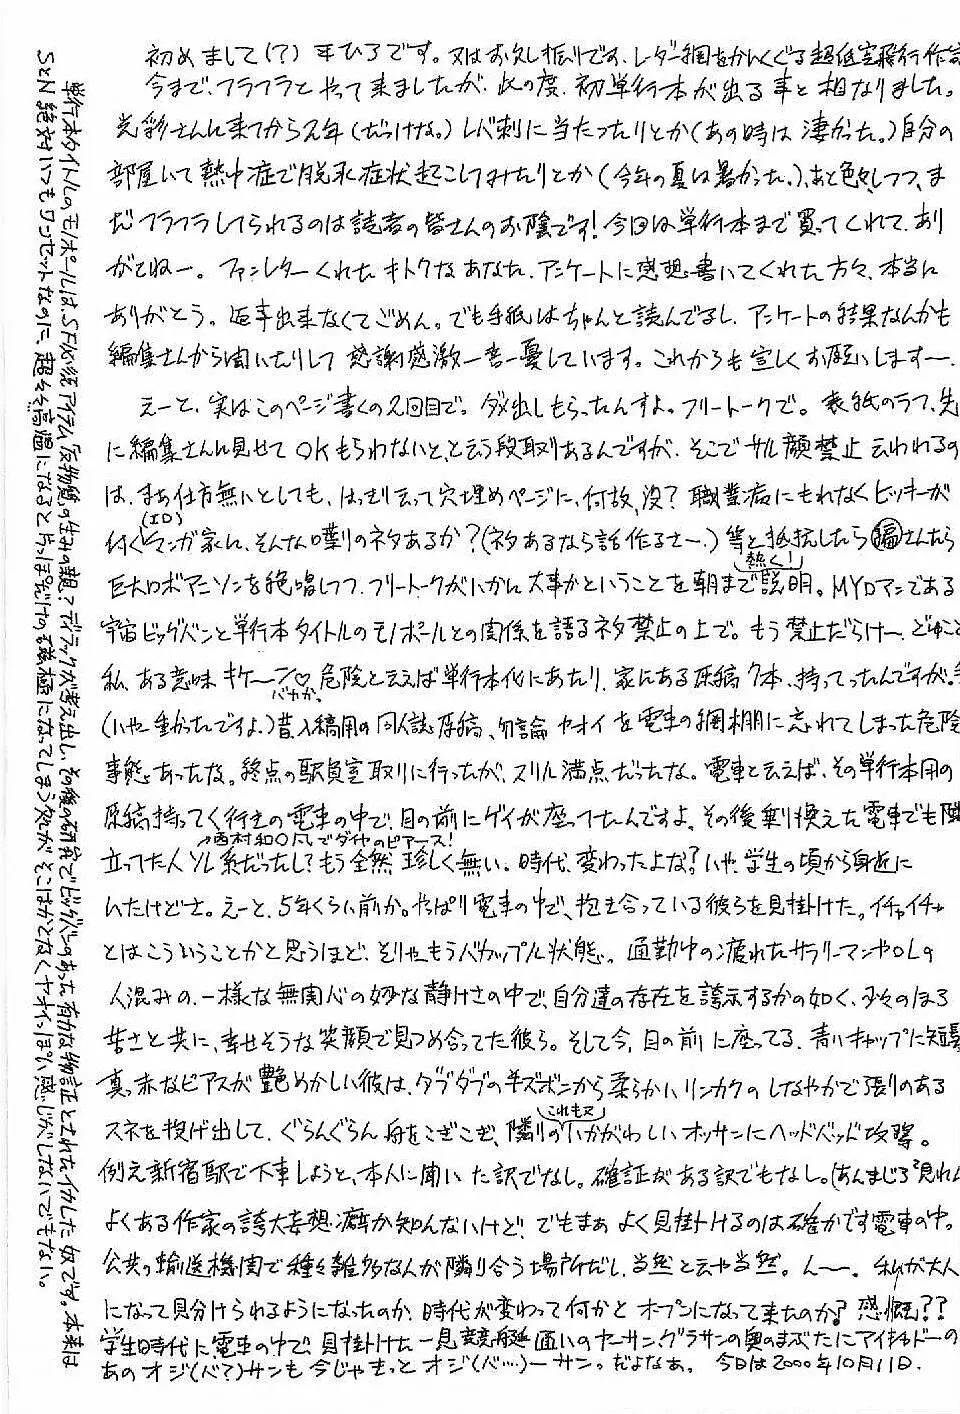 初めまして(?) 耳ひろです。又はお久し振りです、レーダー網をかいくぐる超低空飛行作家
今まで、フラフラとやって来ましたが、此の度、初単行本が出る事と相なりました。
光彩さんに来てから2年(だっけな。)レバ刺に当たったりとか(あの時は凄かった。)自分の
部屋にて熱中症で脱水症状起こしてみたりとか(今年の夏は暑かった。)、あと色々しつつ、ま
だフラフラしてられるのは読者の皆さんのお陰です!今回は単行本まで買ってくれて、あり
がとねー。ファンレターくれたキトクなあなた、アンケートに感想書いてくれた方々、本当に
ありがとう。返事出来なくてごめん。でも手紙はちゃんと読んでるし、アンケートの結果なんかも
編集さんから聞いたりして感謝感激一喜一憂しています。これからも宜しくお願いします〜。
えーと、実はこのページ書くの2回目で。ダメ出しもらったんすよ。フリートークで。表紙のラフ、先
に編集さんに見せてOKもらわないと、と云う段取りあるんですが、そこでサル顔禁止云われるの
は、まあ仕方無いとしても、はっきり云って穴埋めページに、何故、没?職業病にもれなくヒッキーが
付く(IO)マンガ家に、そんな喋りのネタあるか?(ネタあるなら話作るさー。)等と抵抗したら編さんたら
巨大ロボアニソンを絶唱しつつ、フリートークがいかに大事かということを朝まで熱く!説明。MYロマンである
宇宙ビッグバンと単行本タイトルのモノポールとの関係を語るネタ禁止の上で。もう禁止だらけー、どゆこと
私、ある意味キケーン♡バカか。危険と云えば単行本化にあたり、家にある原稿7本、持ってったんですが。
(いや重かったですよ。)昔、入稿用の同人誌原稿、勿論ヤオイを電車の網棚に忘れてしまった危険
事態あったな。終点の駅員室取りに行ったが、スリル満点だったな。電車と云えば、その単行本用の
原稿持ってく行きの電車の中で、目の前にゲイが座ってたんですよ。その後乗り換えた電車でも隣
立ってた人ソレ系だったし?もう全然珍しく無い。時代、変わったよな?いや、学生の頃から身近に
↗西村和○風でダイヤのピアース!
いたけどさ。えーと、5年くらい前か。やっぱり電車の中で、抱き合っている彼らを見掛けた。イチャイチャ
とはこういうことかと思うほど、そりゃもうバカップル状態。通勤中の疲れたサラリーマンやOLの
人混みの、一様な無関心の妙な静けさの中で、自分達の存在を誇示するかの如く、少々のほろ
苦さと共に、幸せそうな笑顔で見つめ合ってた彼ら。そして今、目の前に座ってる、青いキャップに短髪
真っ赤なピアスが艶めかしい彼は、ダブダブの半ズボンから柔らかいリンカクのしなやかで張りのある
スネを投げ出して、ぐらんぐらん舟をこぎこぎ、隣りのこれも又いかがわしいオッサンにヘッドバッド攻撃。
例え新宿駅で下車しようと、本人に聞いた訳でなし。確証がある訳でもなし。(あんまじろじろ見れん
よくある作家の誇大妄想癖か知んないけど、でもまあよく見掛けるのは確かです電車の中。
公共の輸送機関で種々雑多な人が隣り合う場所だし、当然と云や当然。んー。私が大人
になって見分けられるようになったのか、時代が変わって何かとオープンになって来たのか?感慨??
学生時代に電車の中で、見掛けた一見競艇通いのヤーサン、グラサンの奥のまぶたにアイシャドーの
あのオジ(バ?)サンも今じゃきっとオジ(バ…)ーサン。だよなぁ。 今日は2000年10月11日.
単行本タイトルのモノポールは、SF必須アイテム「反物質」の生みの親、ディラックが考え出し、その後の研究でビッグバンのあった有力な物証とされたイカした奴です。本来は
SとN絶対いつもワンセットなのに、超々高温になると片っぽだけの磁極になってしまう処が、そこはかとなくヤオイっぽい感じがしないでもない。